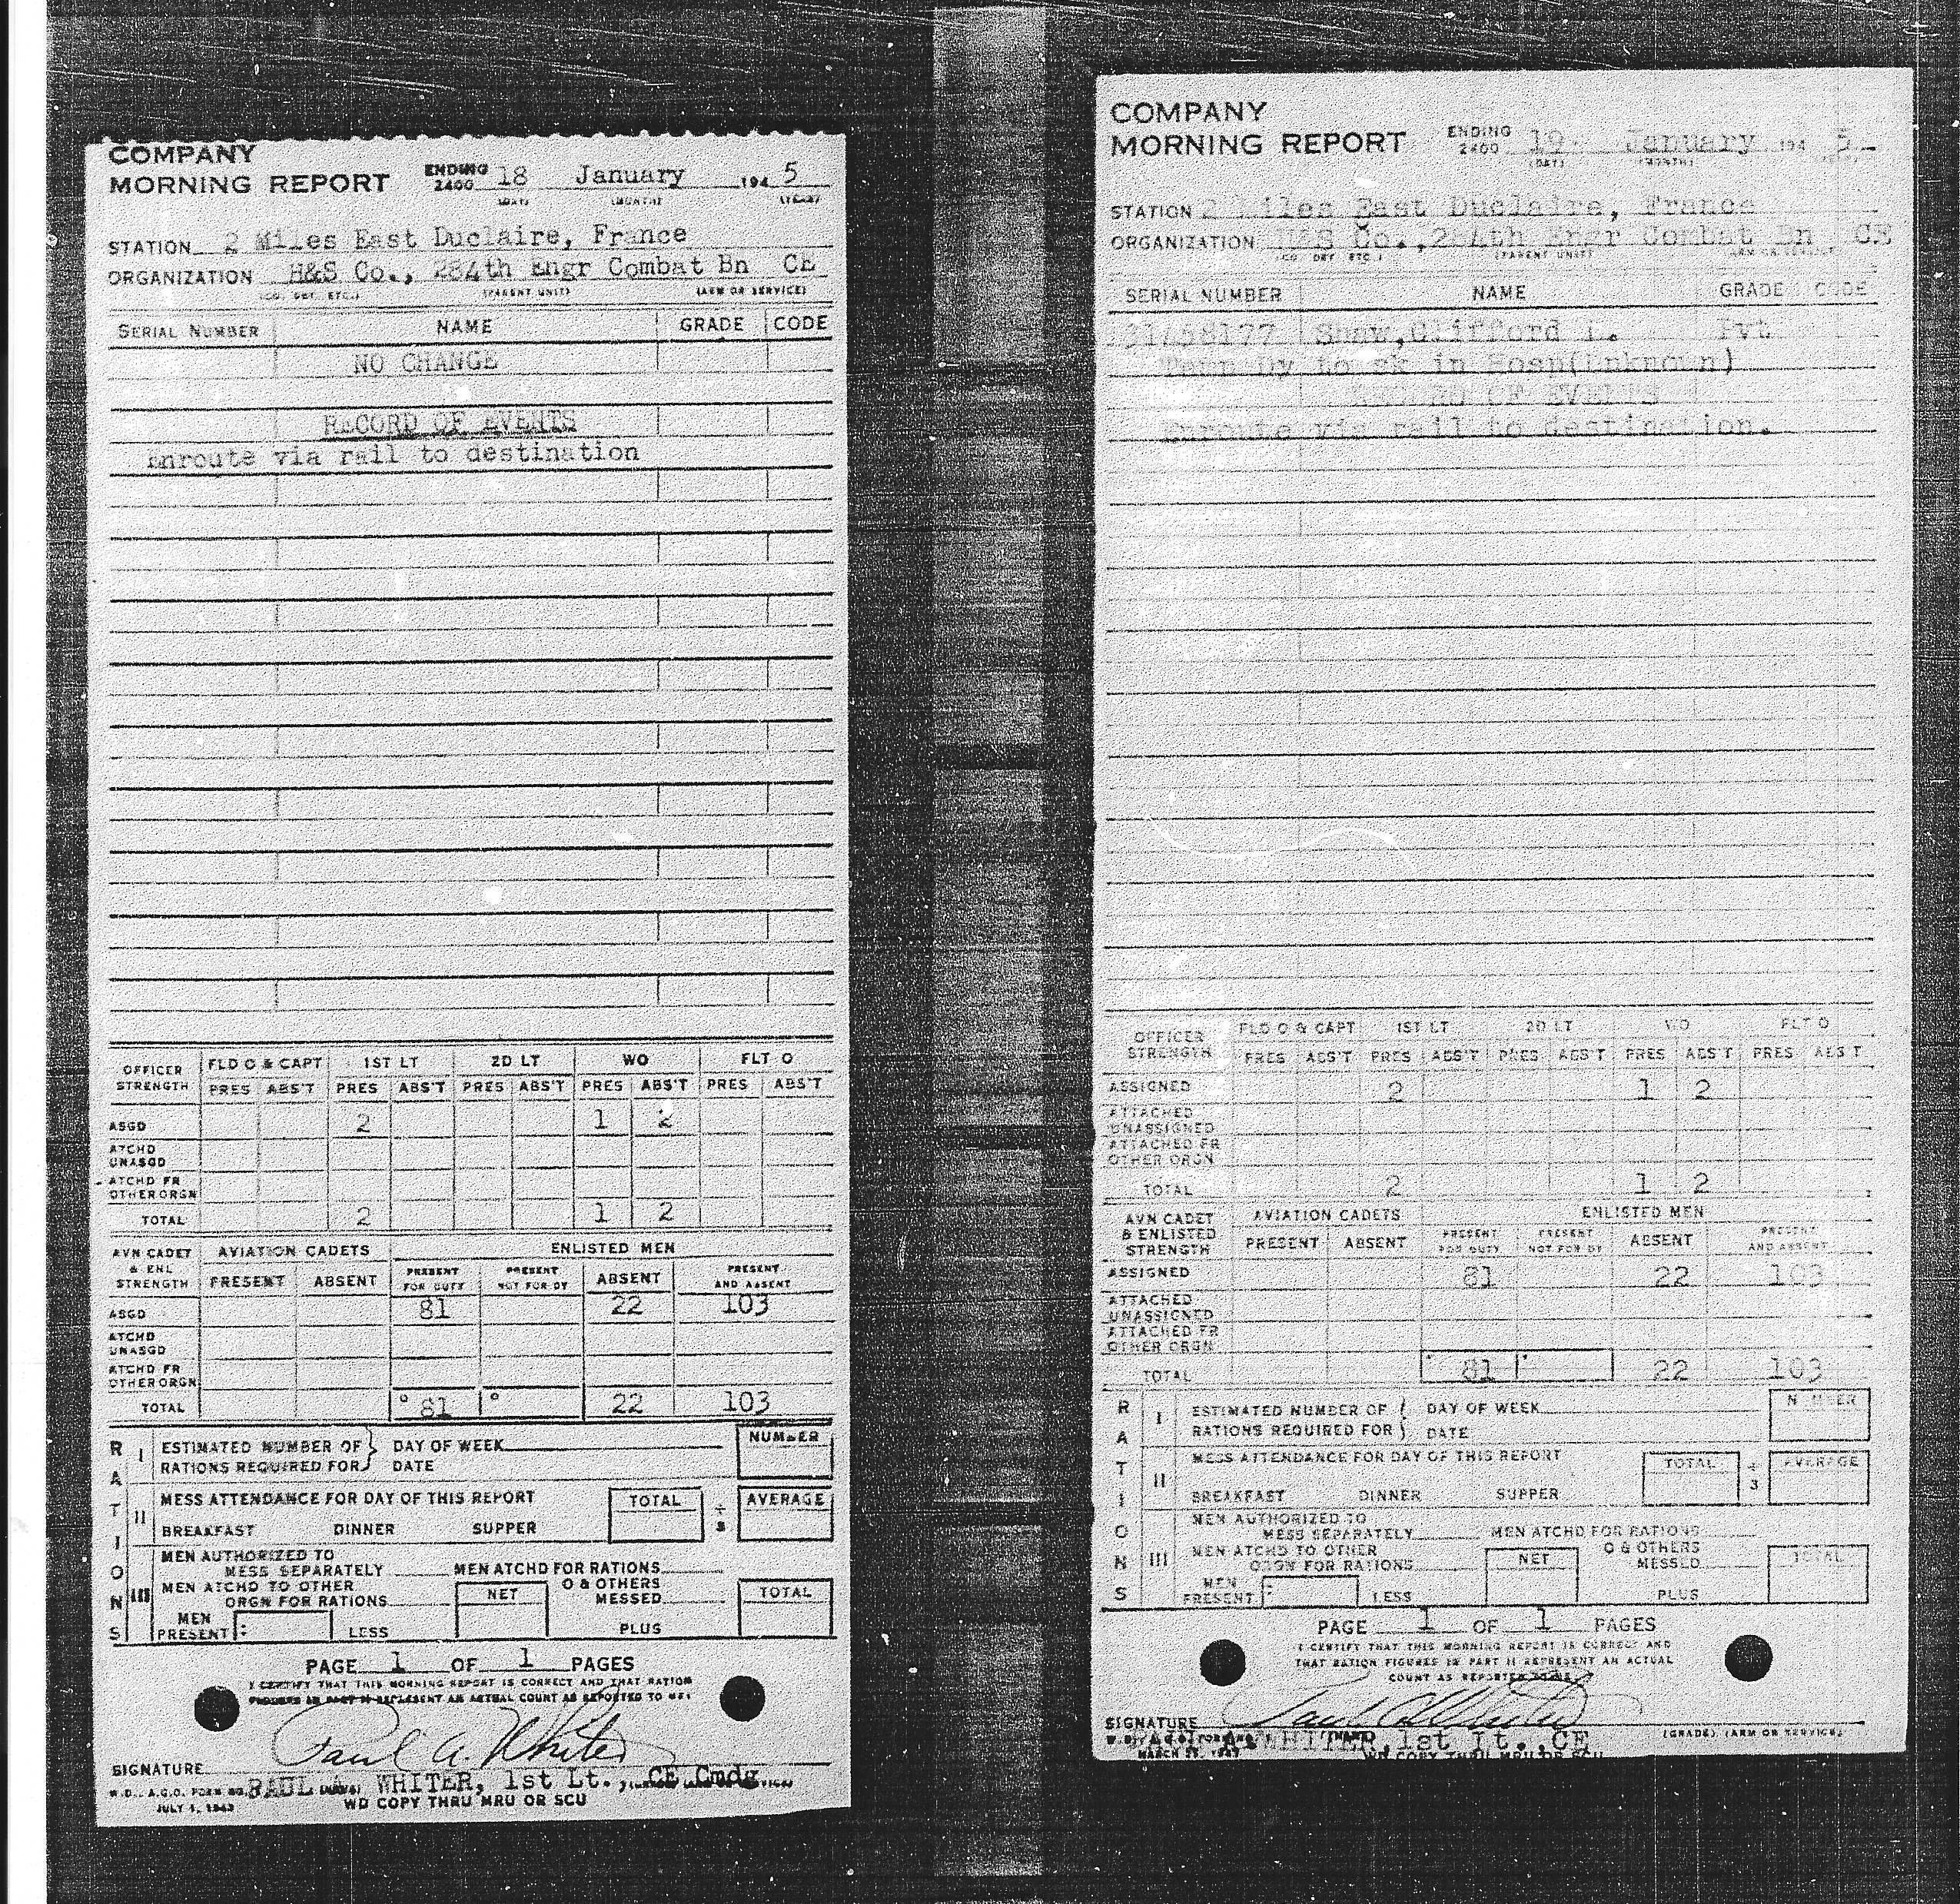 COMPANY
MORNING REPORT ENDING 2400 18 January 194 5
(DAY) (MONTH) (YEAR)
STATION 2 Miles East Duclaire, France
ORGANIZATION H&S Co., 284th Engr Combat Bn CE
(CO. DET. ETC.) (PARENT UNIT) (ARM OR SERVICE)
SERIAL NUMBER NAME GRADE CODE
NO CHANGE
RECORD OF EVENTS
Enroute via rail to destination
OFFICER STRENGTH FLD O & CAPT 1ST LT 2D LT WO FLT O
PRES ABS'T PRES ABS'T PRES ABS'T PRES ABS'T PRES ABS'T
ASGD 2 1 2
ATCHD UNASGD
ATCHD FR OTHER ORGN
TOTAL 2 1 2
AVN CADET & ENL STRENGTH AVIATION CADETS ENLISTED MEN
PRESENT ABSENT PRESENT FOR DUTY PRESENT NOT FOR DY ABSENT PRESENT AND ABSENT
ASGD 81 22 103
ATCHD UNASGD
ATCHD FR OTHER ORGN
TOTAL 81 22 103
RATIONS
I ESTIMATED NUMBER OF RATIONS REQUIRED FOR } DAY OF WEEK DATE NUMBER
II MESS ATTENDANCE FOR DAY OF THIS REPORT TOTAL ÷ 3 AVERAGE
BREAKFAST DINNER SUPPER
III MEN AUTHORIZED TO MESS SEPARATELY MEN ATCHD FOR RATIONS
MEN ATCHD TO OTHER ORGN FOR RATIONS NET O & OTHERS MESSED TOTAL
MEN PRESENT: LESS PLUS
PAGE 1 OF 1 PAGES
I CERTIFY THAT THIS MORNING REPORT IS CORRECT AND THAT RATION
FIGURES IN PART II REPRESENT AN ACTUAL COUNT AS REPORTED TO ME:
Paul A. Whiter
SIGNATURE
PAUL A. WHITER, 1st Lt., CE Cmdg
W.D., A.G.O. FORM NO.
JULY 1, 1943 WD COPY THRU MRU OR SCU
COMPANY
MORNING REPORT ENDING 2400 19 January 194 5
(DAY) (MONTH)
STATION 2 Miles East Duclaire, France
ORGANIZATION H&S Co., 284th Engr Combat Bn CE
(CO. DET. ETC.) (PARENT UNIT) (ARM OR SERVICE)
SERIAL NUMBER NAME GRADE CODE
31458177 Shaw, Clifford L. Pvt
Dy to sk in Hosp (Unknown)
RECORD OF EVENTS
Enroute via rail to destination.
OFFICER STRENGTH FLD O & CAPT 1ST LT 2D LT WO FLT O
PRES ABS'T PRES ABS'T PRES ABS'T PRES ABS'T PRES ABS'T
ASSIGNED 2 1 2
ATTACHED UNASSIGNED
ATTACHED FR OTHER ORGN
TOTAL 2 1 2
AVN CADET & ENLISTED STRENGTH AVIATION CADETS ENLISTED MEN
PRESENT ABSENT PRESENT FOR DUTY PRESENT NOT FOR DY ABSENT PRESENT AND ABSENT
ASSIGNED 81 22 103
ATTACHED UNASSIGNED
ATTACHED FR OTHER ORGN
TOTAL 81 22 103
RATIONS
I ESTIMATED NUMBER OF RATIONS REQUIRED FOR } DAY OF WEEK DATE NUMBER
II MESS ATTENDANCE FOR DAY OF THIS REPORT TOTAL ÷ 3 AVERAGE
BREAKFAST DINNER SUPPER
III MEN AUTHORIZED TO MESS SEPARATELY MEN ATCHD FOR RATIONS
MEN ATCHD TO OTHER ORGN FOR RATIONS NET O & OTHERS MESSED TOTAL
MEN PRESENT: LESS PLUS
PAGE 1 OF 1 PAGES
I CERTIFY THAT THIS MORNING REPORT IS CORRECT AND
THAT RATION FIGURES IN PART II REPRESENT AN ACTUAL
COUNT AS REPORTED TO ME
Paul A Whiter
SIGNATURE
A. WHITER, 1st Lt., CE (GRADE) (ARM OR SERVICE)
WD COPY THRU MRU OR SCU